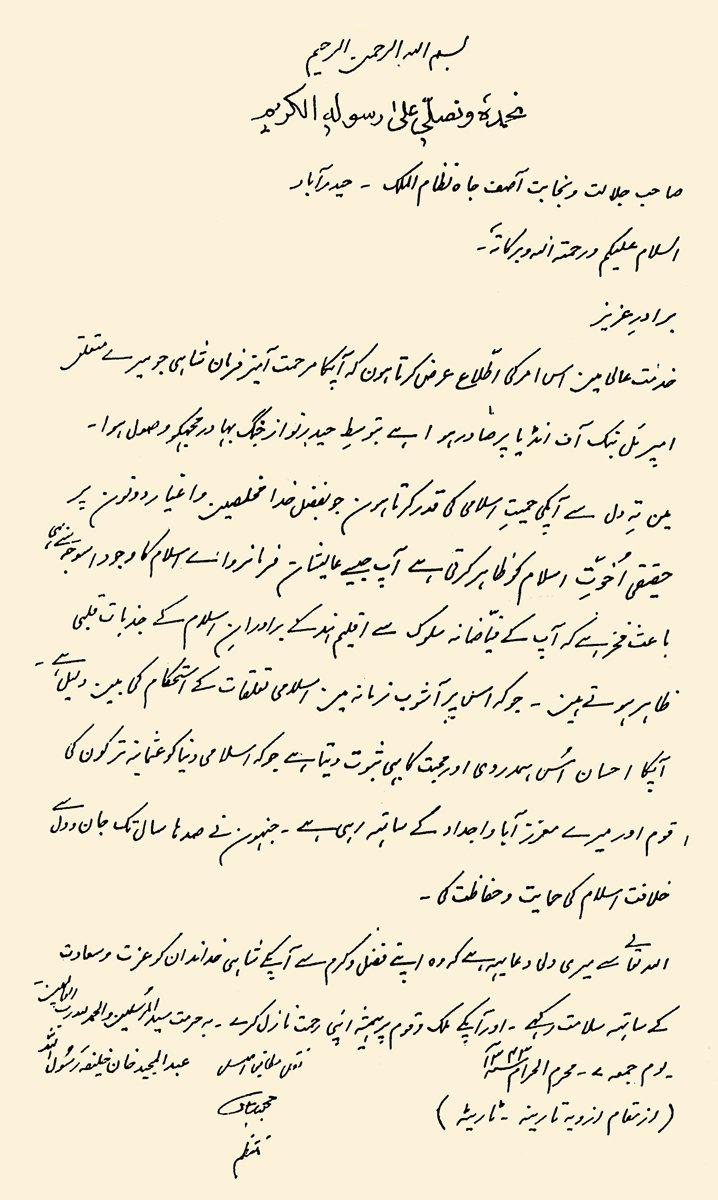 بسم الله الرحمن الرحیم
نحمدہٗ ونصلّی علیٰ رسولہِ الکریم
صاحب جلالت ونجابت آصف جاہ نظام الملک ۔ حیدرآباد
السلام علیکم ورحمتہ اللہ وبرکاتہٗ ۔
برادرِ عزیز
خدمت عالی مین اس امر کی اطّلاع عرض کرتا ہون کہ آپکا مرحمت آمیز فرمان شاہی جو میرے متعلق
امپریل بنک آف انڈیا پر صادر ہوا ہے بتوسطِ حیدر نواز جنگ بہادر مجھکو وصول ہوا ۔
مین تِہ دل سے آپکی حمیتِ اسلامی کی قدر کرتا ہون جو بفضل خدا مخلصین واغیار دونون پر
حقیقی اُخوّتِ اسلام کو ظاہر کرتی ہے آپ جیسے عالیشان فرمانروائے اسلام کا وجود اسوجہ سے بھی
باعث فخر ہے کہ آپ کے فیّاضانہ سلوک سے اقلیم ہند کے برادرانِ اسلام کے جذبات قلبی
ظاہر ہوتے ہین ۔ جو کہ اس پر آشوب زمانہ مین اسلامی تعلقات کے استحکام کی بین دلیل ہے ۔
آپکا احسان اُس ہمدردی اور محبت کا بھی ثبوت دیتا ہے جو کہ اسلامی دنیا کو عثمانیہ ترکون کی
قوم اور میرے معزز آبا و اجداد کے ساتھہ رہی ہے ۔ جنہون نے صدہا سال تک جان و دل سے
خلافت اسلام کی حمایت و حفاظت کی ۔
اللہ تعالےٰ سے میری دلی دعا یہہ ہے کہ وہ اپنے فضل و کرم سے آپکے شاہی خداندان کو عزت و سعادت
کے ساتھہ سلامت رکھے ۔ اور آپکے ملک و قوم پر ہمیشہ اپنی رحمت نازل کرے ۔ بہ حرمت سید المرسلین والحمد للہ رب العالمین ۔
یوم جمعہ ۷ ۔ محرم الحرام ۱۳۴۳ عبدالمجید خان خلیفہ رسول اللہ
(از مقام ازویہ تارینہ ۔ ٹاریٹہ )